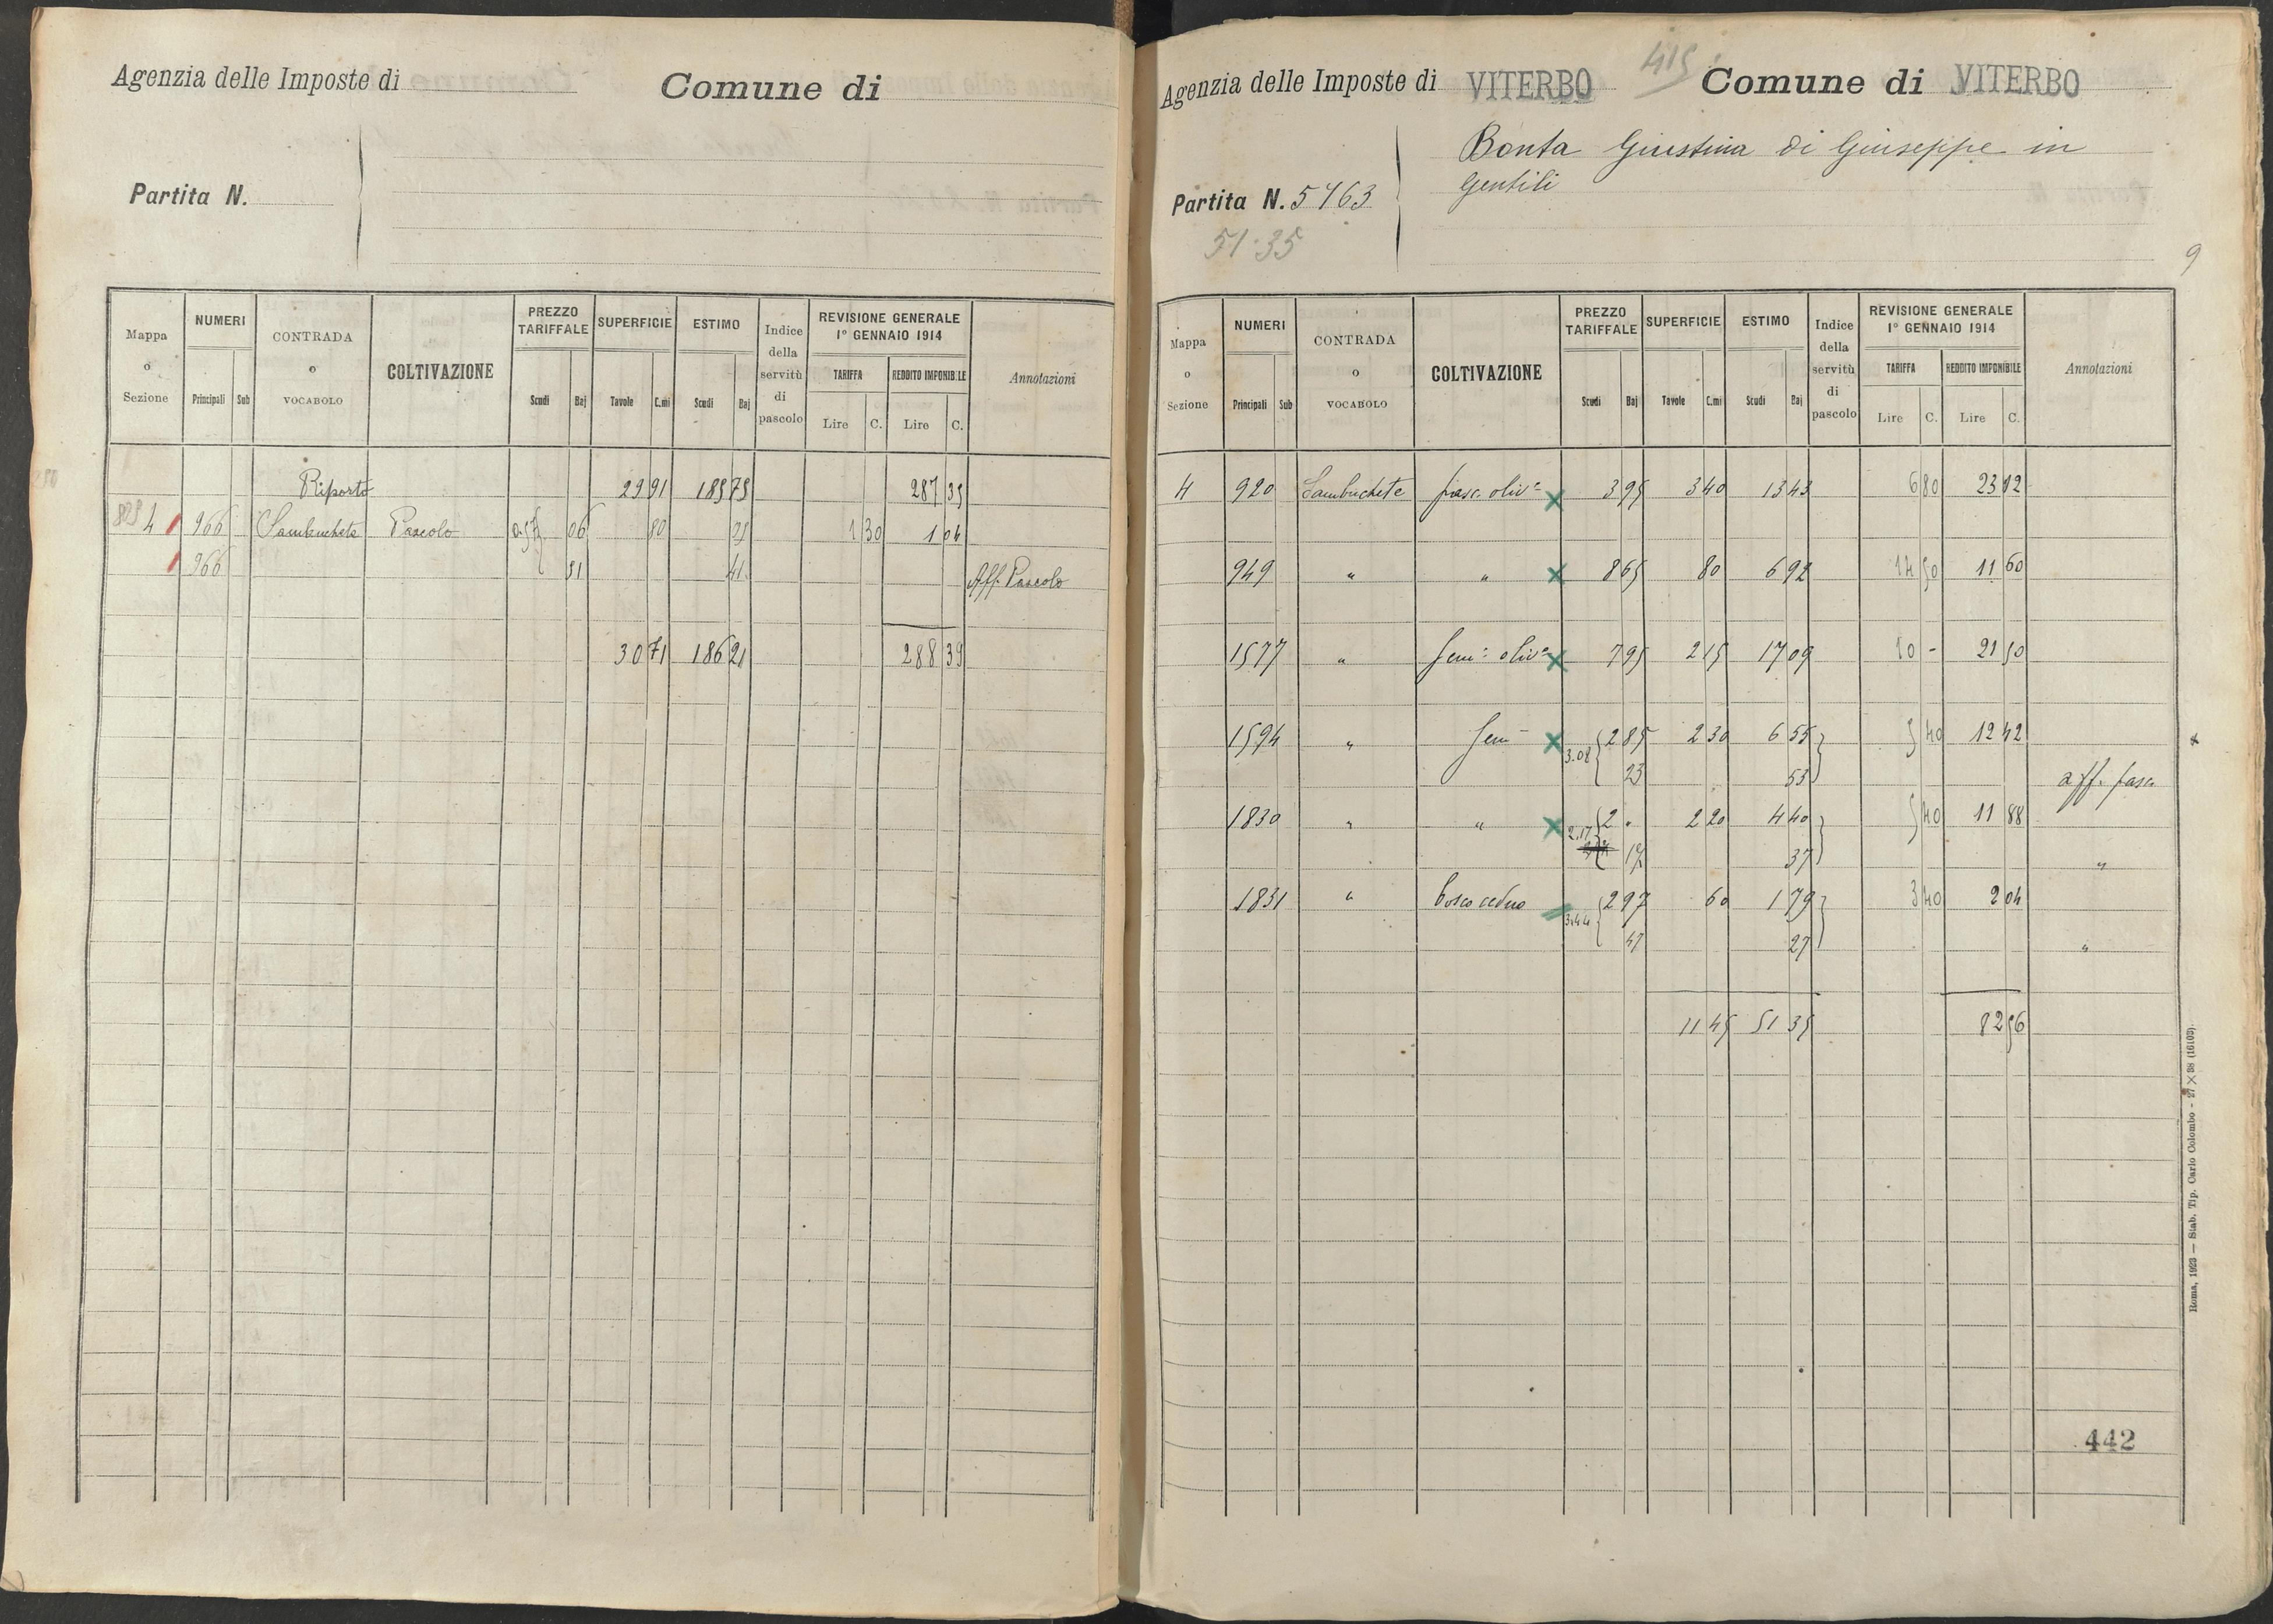 Agenzia delle Imposte di Comune di
Partita N.
Mappa o Sezione NUMERI Principali Sub CONTRADA o VOCABOLO COLTIVAZIONE PREZZO TARIFFALE Scudi Baj SUPERFICIE Tavole C.mi ESTIMO Scudi Baj Indice della servitù di pascolo REVISIONE GENERALE 1° GENNAIO 1914 TARIFFA Lire C. REDDITO IMPONIBILE Lire C. Annotazioni
Riporto 29 91 185 75 287 35
4 966 Sambuchete Pascolo 06 80 1 30 1 04
966 51 41 Aff. Pascolo
30 71 186 21 288 39
Agenzia delle Imposte di VITERBO 415 Comune di VITERBO
Bonta Giustina di Giuseppe in
Gentili
Partita N. 5463
51.35
9
Mappa o Sezione NUMERI Principali Sub CONTRADA o VOCABOLO COLTIVAZIONE PREZZO TARIFFALE Scudi Baj SUPERFICIE Tavole C.mi ESTIMO Scudi Baj Indice della servitù di pascolo REVISIONE GENERALE 1° GENNAIO 1914 TARIFFA Lire C. REDDITO IMPONIBILE Lire C. Annotazioni
4 920 Sambuchete pasc. oliv° x 3 95 3 40 13 43 6 80 23 12
949 " " x 8 65 80 6 92 14 50 11 60
1577 " Sem° oliv° x 7 95 2 15 17 09 10 - 21 50
1594 " Sem x 3.08 { 2 85 2 30 6 55 } 5 40 12 42
23 53 aff. pasc.
1830 " " x 2.17 { 2 . 2 20 4 40 } 5 40 11 88
17 37 "
1831 " bosco ceduo 3.44 { 2 97 60 1 79 } 3 40 2 04
47 27 "
11 45 51 35 82 56
442
Roma, 1923 — Stab. Tip. Carlo Colombo - 27 × 38 (16103).